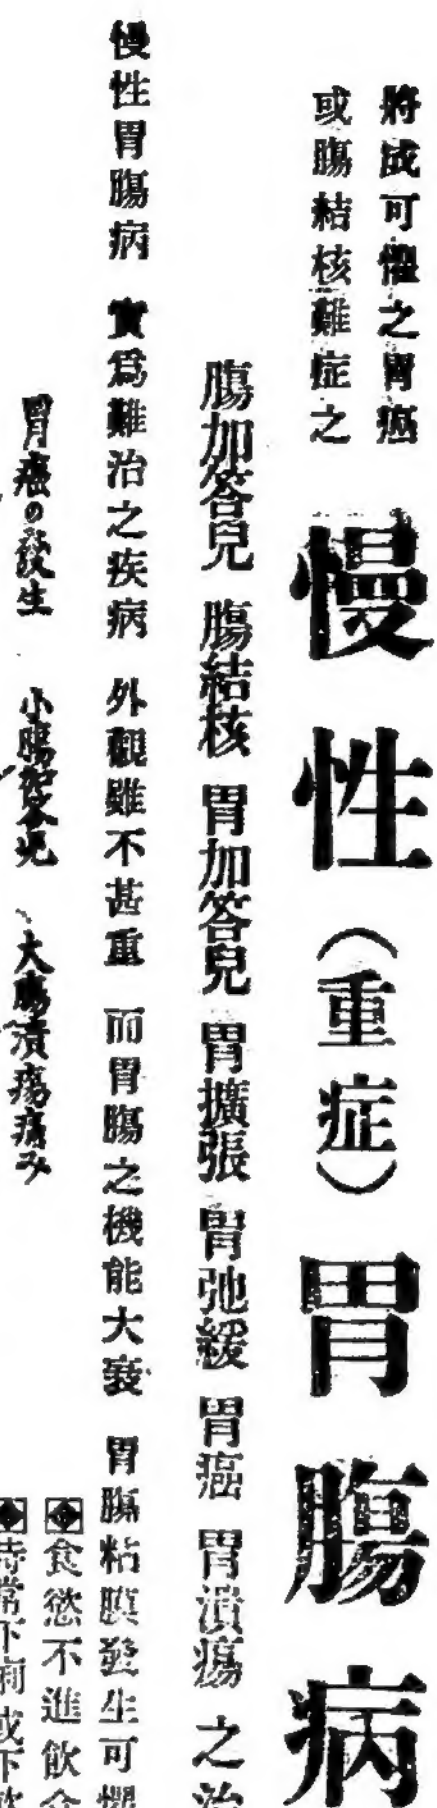 將成可懼之胃癌
或腸結核難症之
慢性(重症)胃腸病
腸加答兒 腸結核 胃加答兒 胃擴張 胃弛緩 胃癌 胃潰瘍 之治
慢性胃腸病 實爲難治之疾病 外觀雖不甚重 而胃腸之機能大衰 胃腸粘膜發生可懼
食慾不進飲食
胃癌の發生 小腸加答兒 大腸潰瘍痛み
時常下痢或下